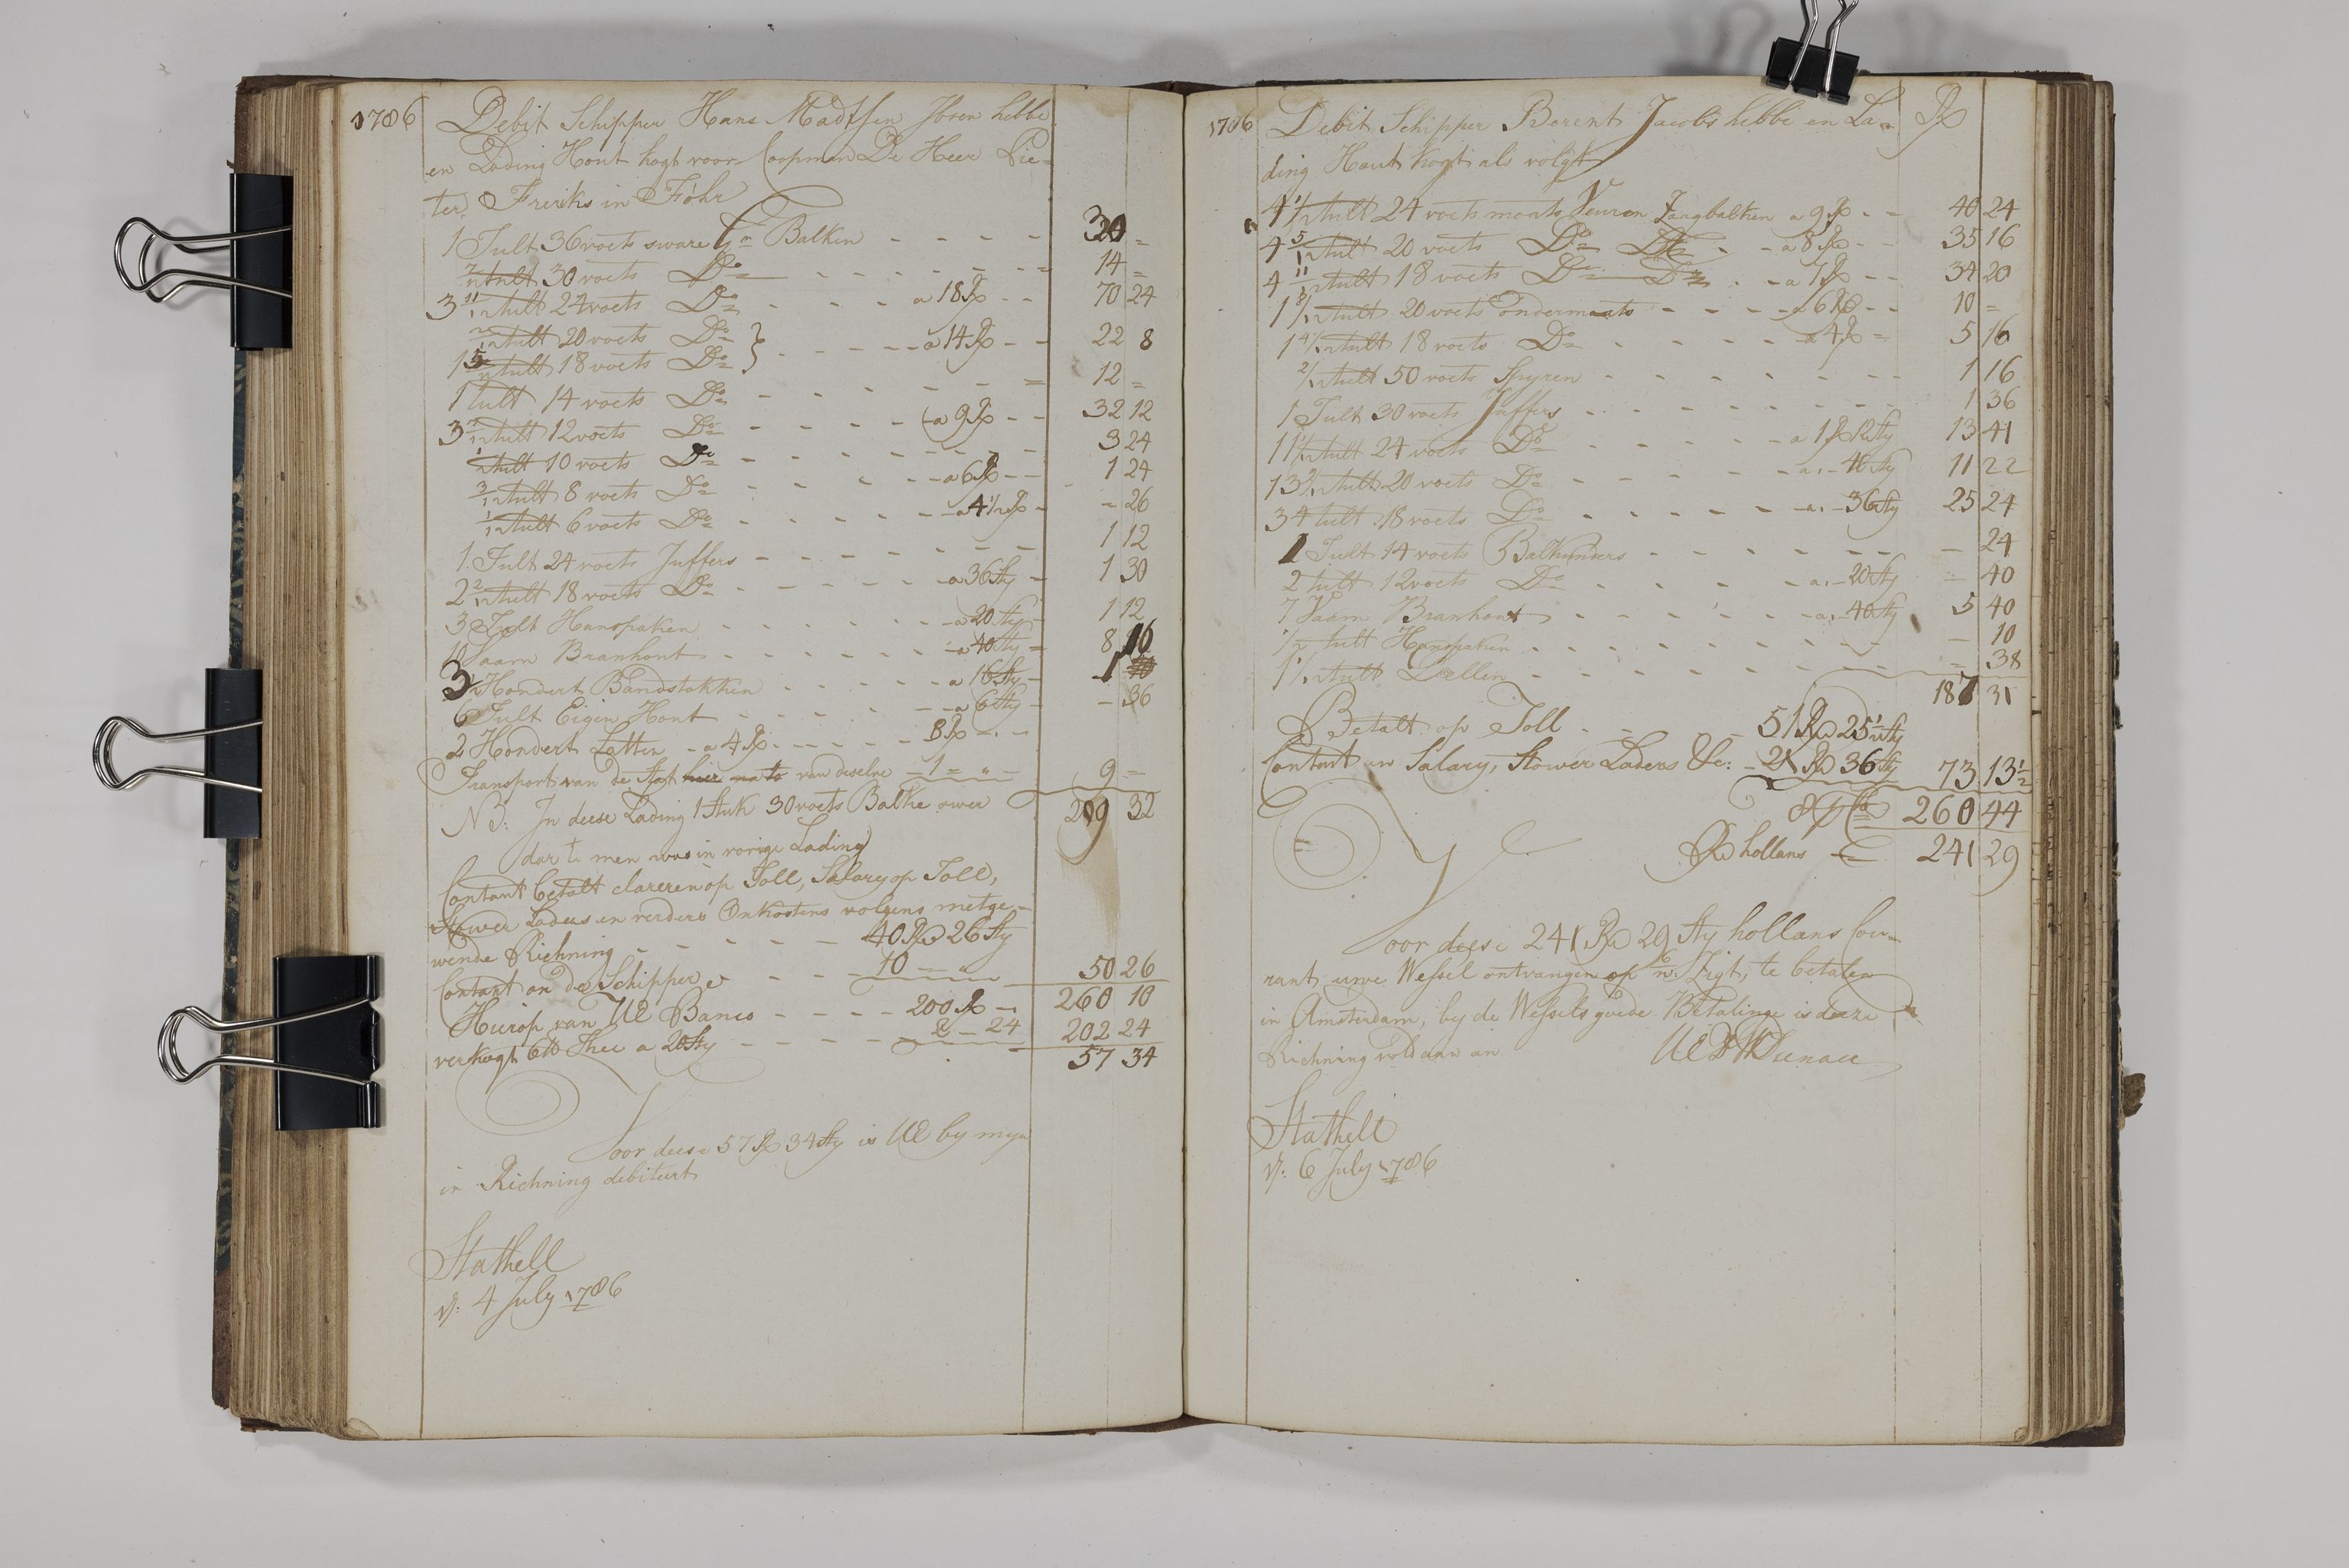 1786 Debit Schipper Hans Madtsen Jbsen hebbe
en Lading Hout kogt voor Coopman De Heer Pie-
ter Frerks in Föhr
1 Tult 36 voets sware Balken - - - - 30 =
7/12 tult 30 voets Do - - - - 14 =
3 11/12 tult 24 voets Do - - - - a 18 R - - 70 24
2/12 tult 20 voets Do }
1 5/12 tult 18 voets Do } - - - - a 14 R - - 22 8
1 tult 14 voets Do - - - - 12 =
3 7/12 tult 12 voets Do - - - - a 9 R - - 32 12
tult 10 voets Do - - - - 3 24
3/12 tult 8 voets Do - - - - a 6 R - - 1 24
1/12 tult 6 voets Do - - - - a 4 1/2 R - - 26
1 Tult 24 voets Juffers - - - - 1 12
2 2/12 tult 18 voets Do - - - - a 36 sty - 1 30
3 Tult Hanspaken - - - - a 20 sty - 1 12
Vaam Branhout - - - - a 40 sty - 8 16
3 Hondert Bandstokken - - - - a 16 sty - 1
6 Tult Eigen Hout - - - - a 6 sty - - 36
2 Hondert Latten - a 4 R - - - - 8 R - -
Transport van de van deselve - 1 = " - 9 =
209 32
NB: In deese Lading 1 Stuk 30 voets Balke over
dar te men was in vorige Lading
Contant betalt clareren op Toll, Salary op Toll,
Stower Laders en verdere Onkostens volgens metge-
vende Richning - - - - 40 R 26 sty
Contant an de Schipper - - - 10 - " - 50 26
260 10
Hierop van UE Banco - - - - 200 R -
verkogt 6 lb Thee a 20 sty - - - - 2 - 24 202 24
57 34
Voor deese 57 R 34 sty is UE by myn
in Richning debiteert
Stathell
d: 4 July 1786
1786 Debit Schipper Berent Jacobs hebbe en La- R
ding Hout kogt als volgt
4 1/2 tult 24 voets maats Veuren Zaagbalken a 9 R - - 40 24
4 5/12 tult 20 voets Do Do - - a 8 R - - 35 16
4 11/12 tult 18 voets Do Do - - a 7 R - - 34 20
1 8/12 tult 20 voets Ondermaats - - - - a 6 R - - 10 =
1 4/12 tult 18 voets Do - - - - a 4 R = 5 16
2/12 tult 50 voets Spyren - - - - 1 16
1 Tult 30 voets Juffers - - - - 1 36
11 1/12 tult 24 voets Do - - - - a 1 R 12 sty 13 41
13 tult 20 voets Do - - - - a - 40 sty 11 22
34 tult 18 voets Do - - - - a - 36 sty 25 24
1 Tult 14 voets - - - - - 24
2 tult 12 voets Do - - - - a - 20 sty - 40
7 Vaam Branhout - - - - a - 40 sty 5 40
1/2 tult Hanspaken - - - - - 10
1 1/12 tult Dellen - - - - - 38
187 31
Betalt op Toll - - - 51 R 25 1/2 sty
Contant an Salary, Stower Laders &c: - 21 R 36 sty 73 13 1/2
260 44
R hollans 241 29
Voor deese 241 R 29 sty hollans Cou-
rant, uwe Wessel ontvangen op Zigt, te betalen
in Amsterdam, by de Wessels goede Betalinge is deeze
Richning voldaan an UE
Stathell
d: 6 July 1786